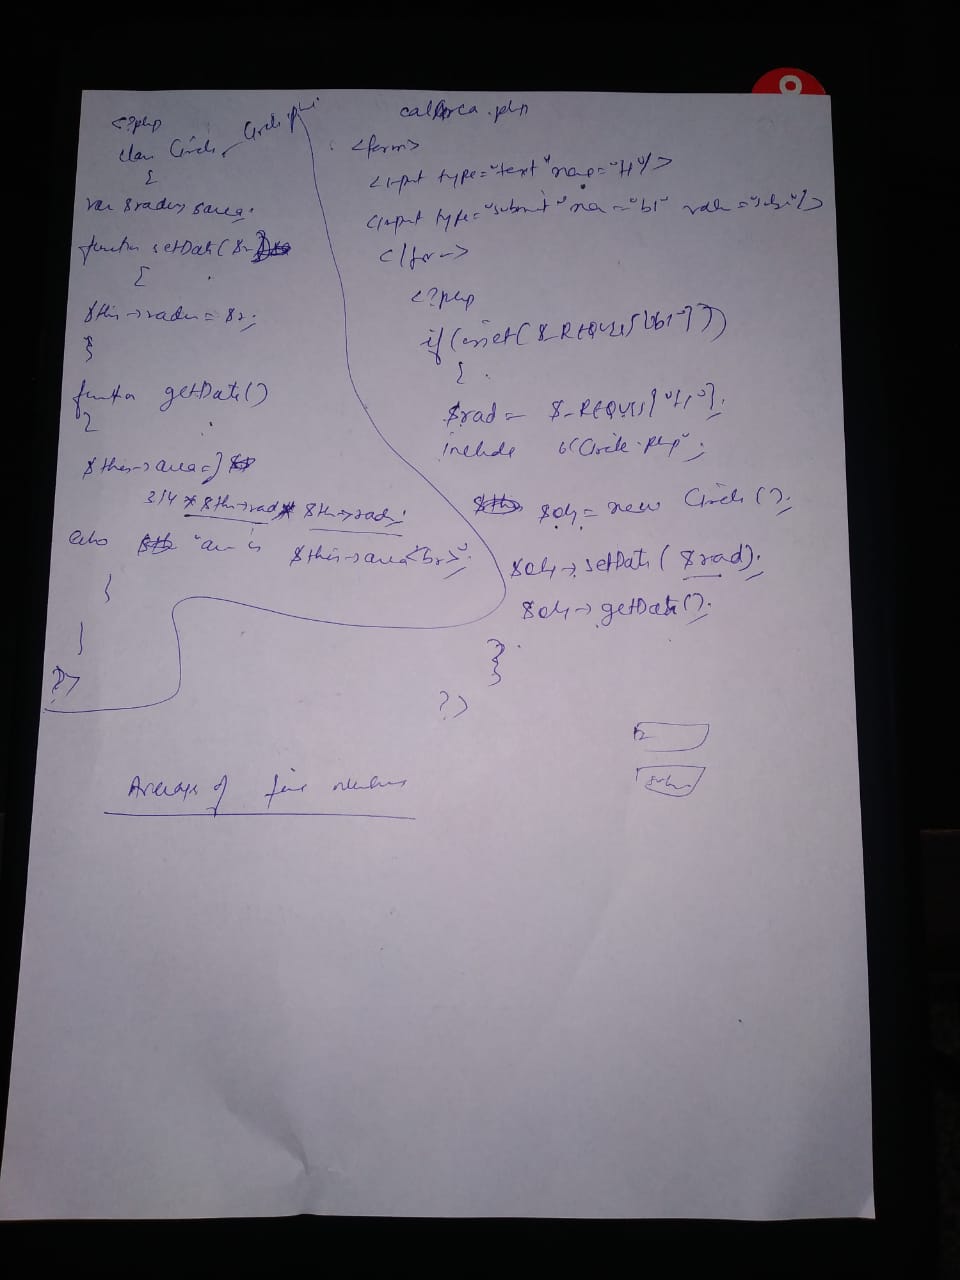 <?php
class Circle Circle.php
{
var $radius, $area;
function setData($r)
{
$this->radius = $r;
}
function getData()
{
$this->area =
3.14 * $this->rad * $this->rad;
echo "area is $this->area<br>";
}
}
?>
calArea.php
<form>
<input type="text" name="t1"/>
<input type="submit" name="b1" value="submit"/>
</form>
<?php
if(isset($_REQUEST["b1"]))
{
$rad = $_REQUEST["t1"];
include "Circle.php";
$obj = new Circle();
$obj->setData($rad);
$obj->getData();
}
?>
Average of five numbers